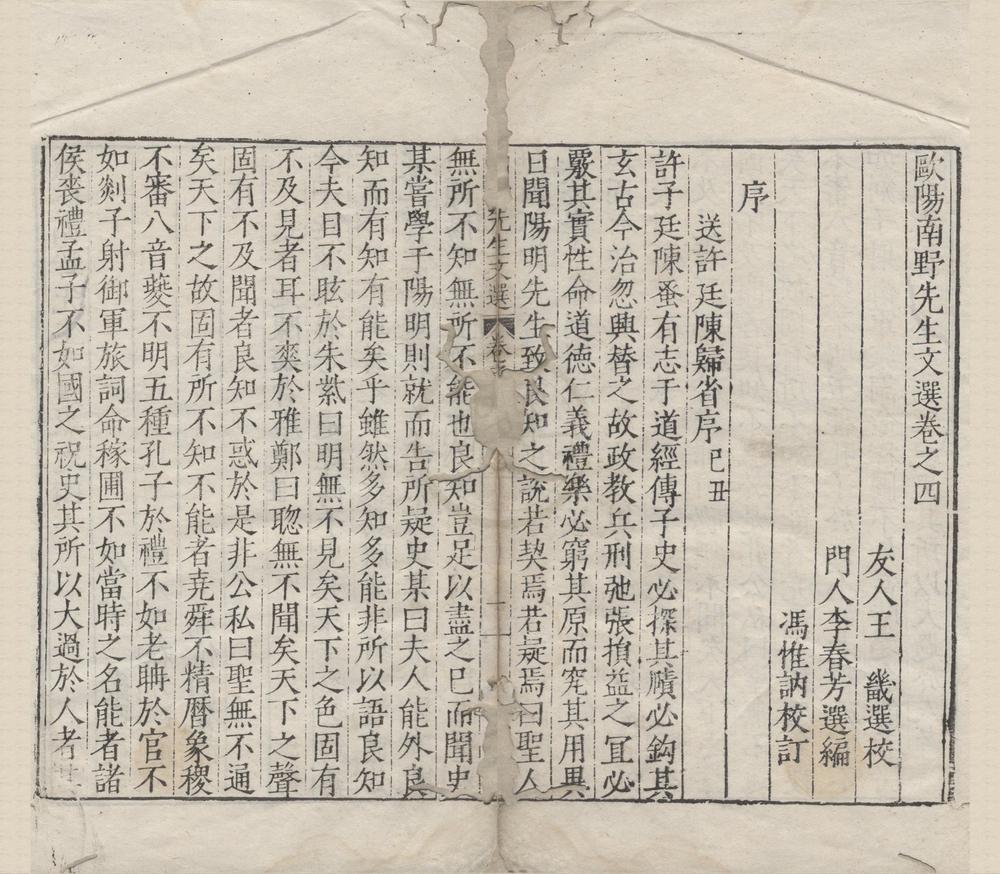 歐陽南野先生文選卷之四
友人王 畿選校
門人李春芳選編
馮惟訥校訂
序
送許廷陳歸省序 己丑
許子廷陳蚤有志于道經傳子史必探其賾必鈎其
玄古今治忽興替之故政教兵刑弛張損益之宜必
覈其實性命道徳仁義禮樂必窮其原而究其用異
日聞陽明先生致良知之說若契焉若疑焉曰聖人
先生文選 卷 一
無所不知無所不能也良知豈足以盡之已而聞史
某嘗學于陽明則就而告所疑史某曰夫人能外良
知而有知有能矣乎雖然多知多能非所以語良知
今夫目不眩於朱紫曰明無不見矣天下之色固有
不及見者耳不爽於雅鄭曰聰無不聞矣天下之聲
固有不及聞者良知不惑於是非公私曰聖無不通
矣天下之故固有所不知不能者堯舜不精曆象稷
不審八音夔不明五種孔子於禮不如老聃於官不
如剡子射御軍旅詞命稼圃不如當時之名能者諸
侯喪禮孟子不如國之祝史其所以大過於人者